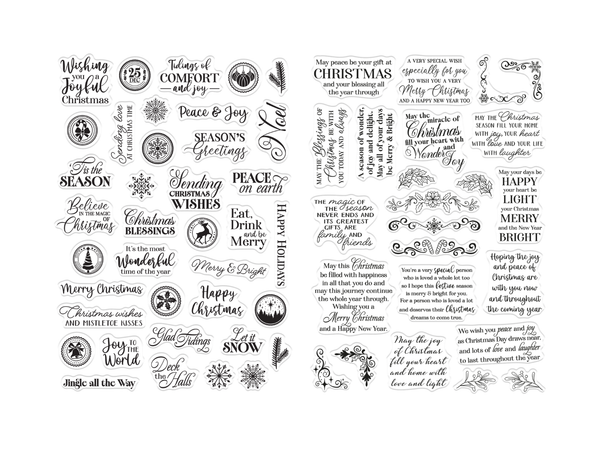 Wishing
you a
Joyful
Christmas
25
DEC
Tidings of
COMFORT
and joy
Sending love
AT CHRISTMAS TIME
Peace & Joy
Noel
SEASON'S
Greetings
'Tis the
SEASON
Sending
CHRISTMAS
WISHES
PEACE
on earth
Believe
IN THE MAGIC
OF
CHRISTMAS
Christmas
BLESSINGS
Eat,
Drink
and be
Merry
HAPPY HOLIDAYS
It's the most
Wonderful
time of the year
Merry & Bright
Merry Christmas
Happy
Christmas
Christmas wishes
AND MISTLETOE KISSES
Joy TO
THE
World
Glad Tidings
Let it
SNOW
Deck
the
Halls
Jingle all the Way
May peace be your gift at
CHRISTMAS
and your blessing all
the year through
A VERY SPECIAL WISH
especially for you
TO WISH YOU A VERY
Merry Christmas
AND A HAPPY NEW YEAR TOO
MAY THE Blessings OF
Christmas BE WITH
YOU TODAY AND always
A season of wonder,
of joy and delight.
May all of your days
be Merry & Bright
May the
miracle of
Christmas
fill your heart with
Wonder
and
Joy
MAY THE Christmas
SEASON FILL YOUR HOME
WITH joy, YOUR HEART
WITH love AND YOUR LIFE
WITH laughter
THE magic OF
THE season
NEVER ENDS AND
ITS GREATEST
GIFTS ARE
family AND
friends
May your days be
HAPPY
your heart be
LIGHT
your Christmas
MERRY
and the New Year
BRIGHT
May this Christmas
be filled with happiness
in all that you do and
may this journey continue
the whole year through.
Wishing you a
Merry Christmas
and a Happy New Year.
You're a very special person
who is loved a whole lot too
so I hope this festive season
is merry & bright for you.
For a person who is loved a lot
and deserves their Christmas
dreams to come true.
Hoping the joy
and peace of
Christmas are
with you now
and throughout
the coming year
May the joy
of Christmas
fill your heart
and home with
love and light
We wish you peace and joy
as Christmas Day draws near,
and lots of love and laughter
to last throughout the year